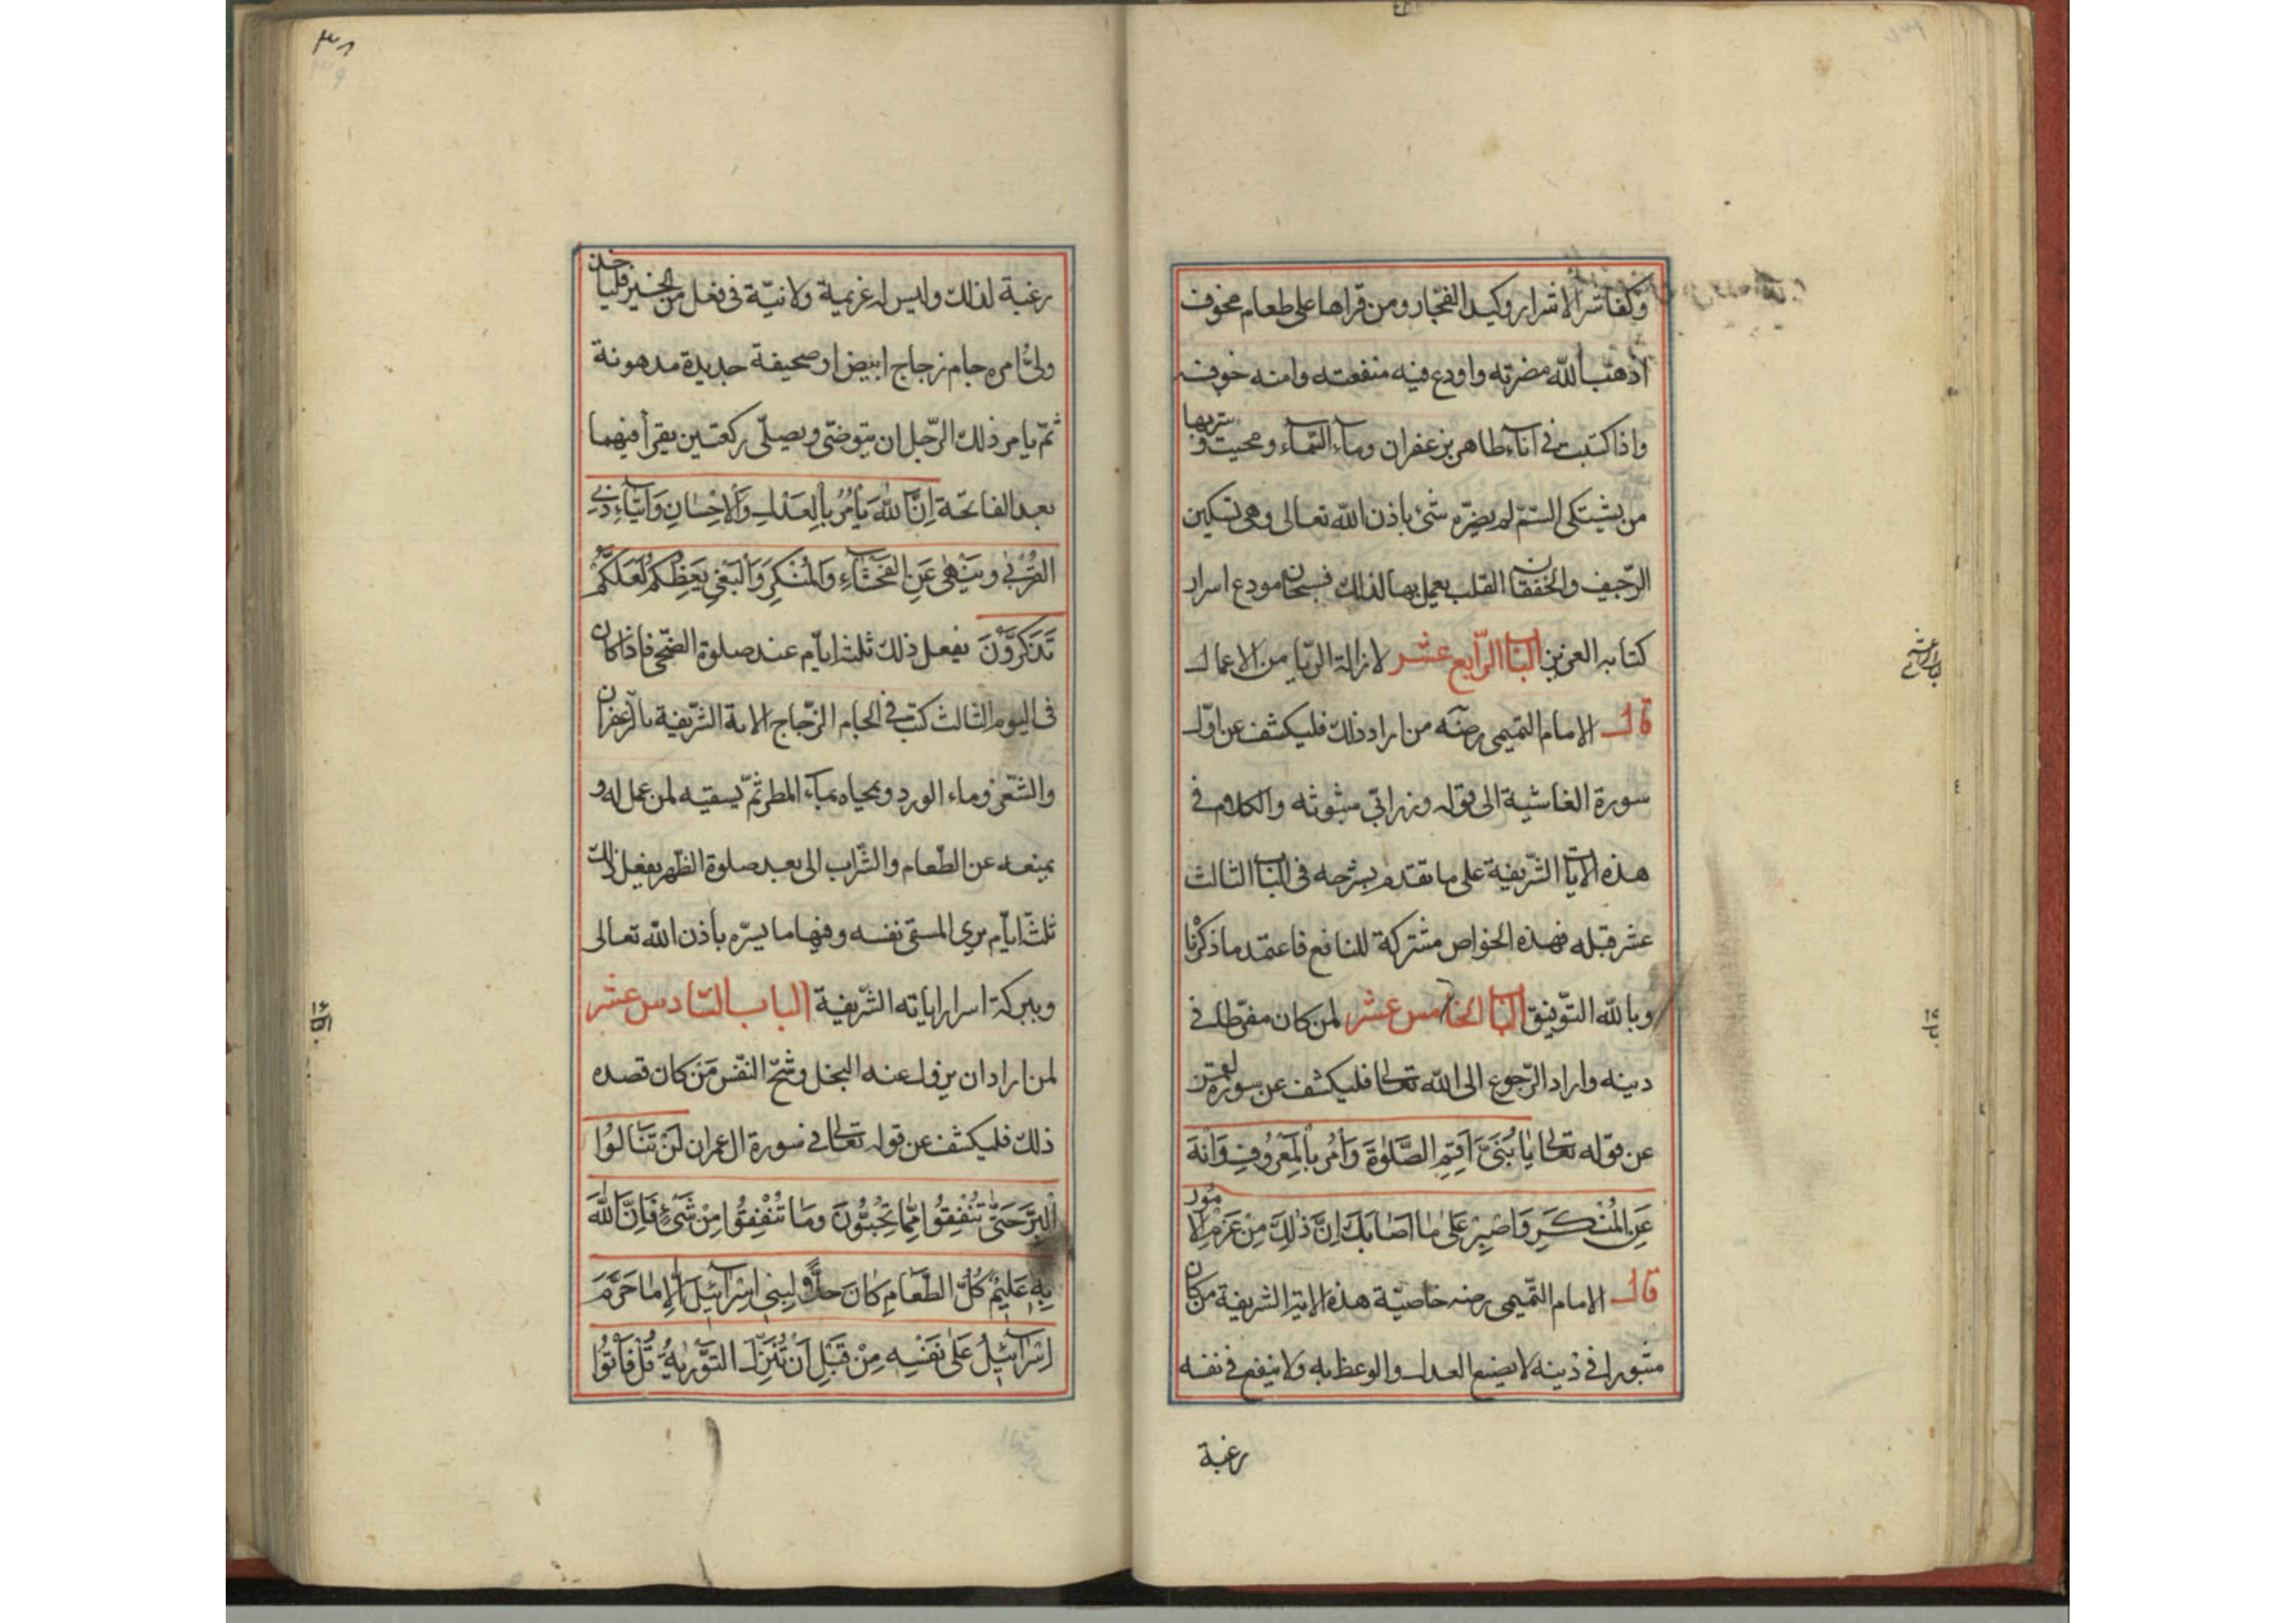 وكفا شر الاشرار وكيد الفجّار ومن قراها على طعام مخوف
اذهب الله مضرته واودع فيه منفعته وامنه خوفه
واذا كتبت فى اناء طاهر بزعفران وماء السّماء ومحيت و شربها
من يشتكى السّمّ لم يضرّه شئ باذن الله تعالى وهى تسكين
الرّجيف والخفقان القلب يعمل بها لذلك فسبحان مودع اسرار
كتابه العزيز الباب الرّابع عشر لازالة الرّيا من الاعمال
قال الامام التميمى رضه من اراد ذلك فليكشف عن اوّل
سورة الغاشية الى قوله وزرابّى مبثوثه والكلام فى
هذه الايات الشّريفة على ما تقدم بشرحه فى الباب الثالث
عشر قبله فهذه الخواص مشتركة المنافع فاعتمد ما ذكرنا
وبالله التّوفيق الباب الخامس عشر لمن كان مفرّطا فى
دينه واراد الرّجوع الى الله تعالى فليكشف عن سورة لقمن
عن قوله تعالى يَا بُنَىَّ اَقِمِ الصَّلٰوةَ وَأْمُرْ بِالْمَعْرُوفِ وَانْهَ
عَنِ الْمُنْكَرِ وَاصْبِرْ عَلٰى مَا اَصَابَكَ اِنَّ ذٰلِكَ مِنْ عَزْمِ الْاُمُورِ
قال الامام التّميمى رضه خاصيّة هذه الاية الشريفة من كان
فى دينه لا يصنع العدل والوعظ به ولا ينفع فى نفسه
رغبة
٣٨
رغبة لذلك وليس له عزيمة ولا نيّة فى فعل من الخير فلياخذ
جام زجاج ابيض او صحيفة جديدة مدهونة
ثمّ يامر ذلك الرّجل ان يتوضّى ويصلّى ركعتين يقرأ فيهما
بعد الفاتحة اِنَّ اللّٰهَ يَأْمُرُ بِالْعَدْلِ وَالْاِحْسَانِ وَاِيتَآءِ ذِى
الْقُرْبٰى وَيَنْهٰى عَنِ الْفَحْشَآءِ وَالْمُنْكَرِ وَالْبَغْىِ يَعِظُكُمْ لَعَلَّكُمْ
تَذَكَّرُونَ يفعل ذلك ثلث ايّام عند صلوة الضّحى فاذا كان
فى اليوم الثالث كتب فى الجام الزّجاج الاية الشّريفة بالزّعفران
وماء الورد ويمحياه بماء المطر ثمّ يسقيه لمن عمل له و
يمنعه عن الطّعام والشّراب الى بعد صلوة الظّهر يفعل ذلك
ثلث ايّام يرى نفسه وفيها ما يسرّه باذن الله تعالى
وببركة اسرار اياته الشّريفة الباب السّادس عشر
لمن اراد ان يزول عنه البخل وشحّ النّفس مَن كان قصده
ذلك فليكشف عن قوله تعالى فى سورة ال عمران لَنْ تَنَالُوا
الْبِرَّ حَتّٰى تُنْفِقُوا مِمَّا تُحِبُّونَ وَمَا تُنْفِقُوا مِنْ شَىْءٍ فَاِنَّ اللّٰهَ
بِهِ عَلِيمٌ كُلُّ الطَّعَامِ كَانَ حِلًّا لِبَنِى اِسْرَآئِيلَ اِلَّا مَا حَرَّمَ
اِسْرَآئِيلُ عَلٰى نَفْسِهِ مِنْ قَبْلِ اَنْ تُنَزَّلَ التَّوْرٰيةُ قُلْ فَأْتُوا